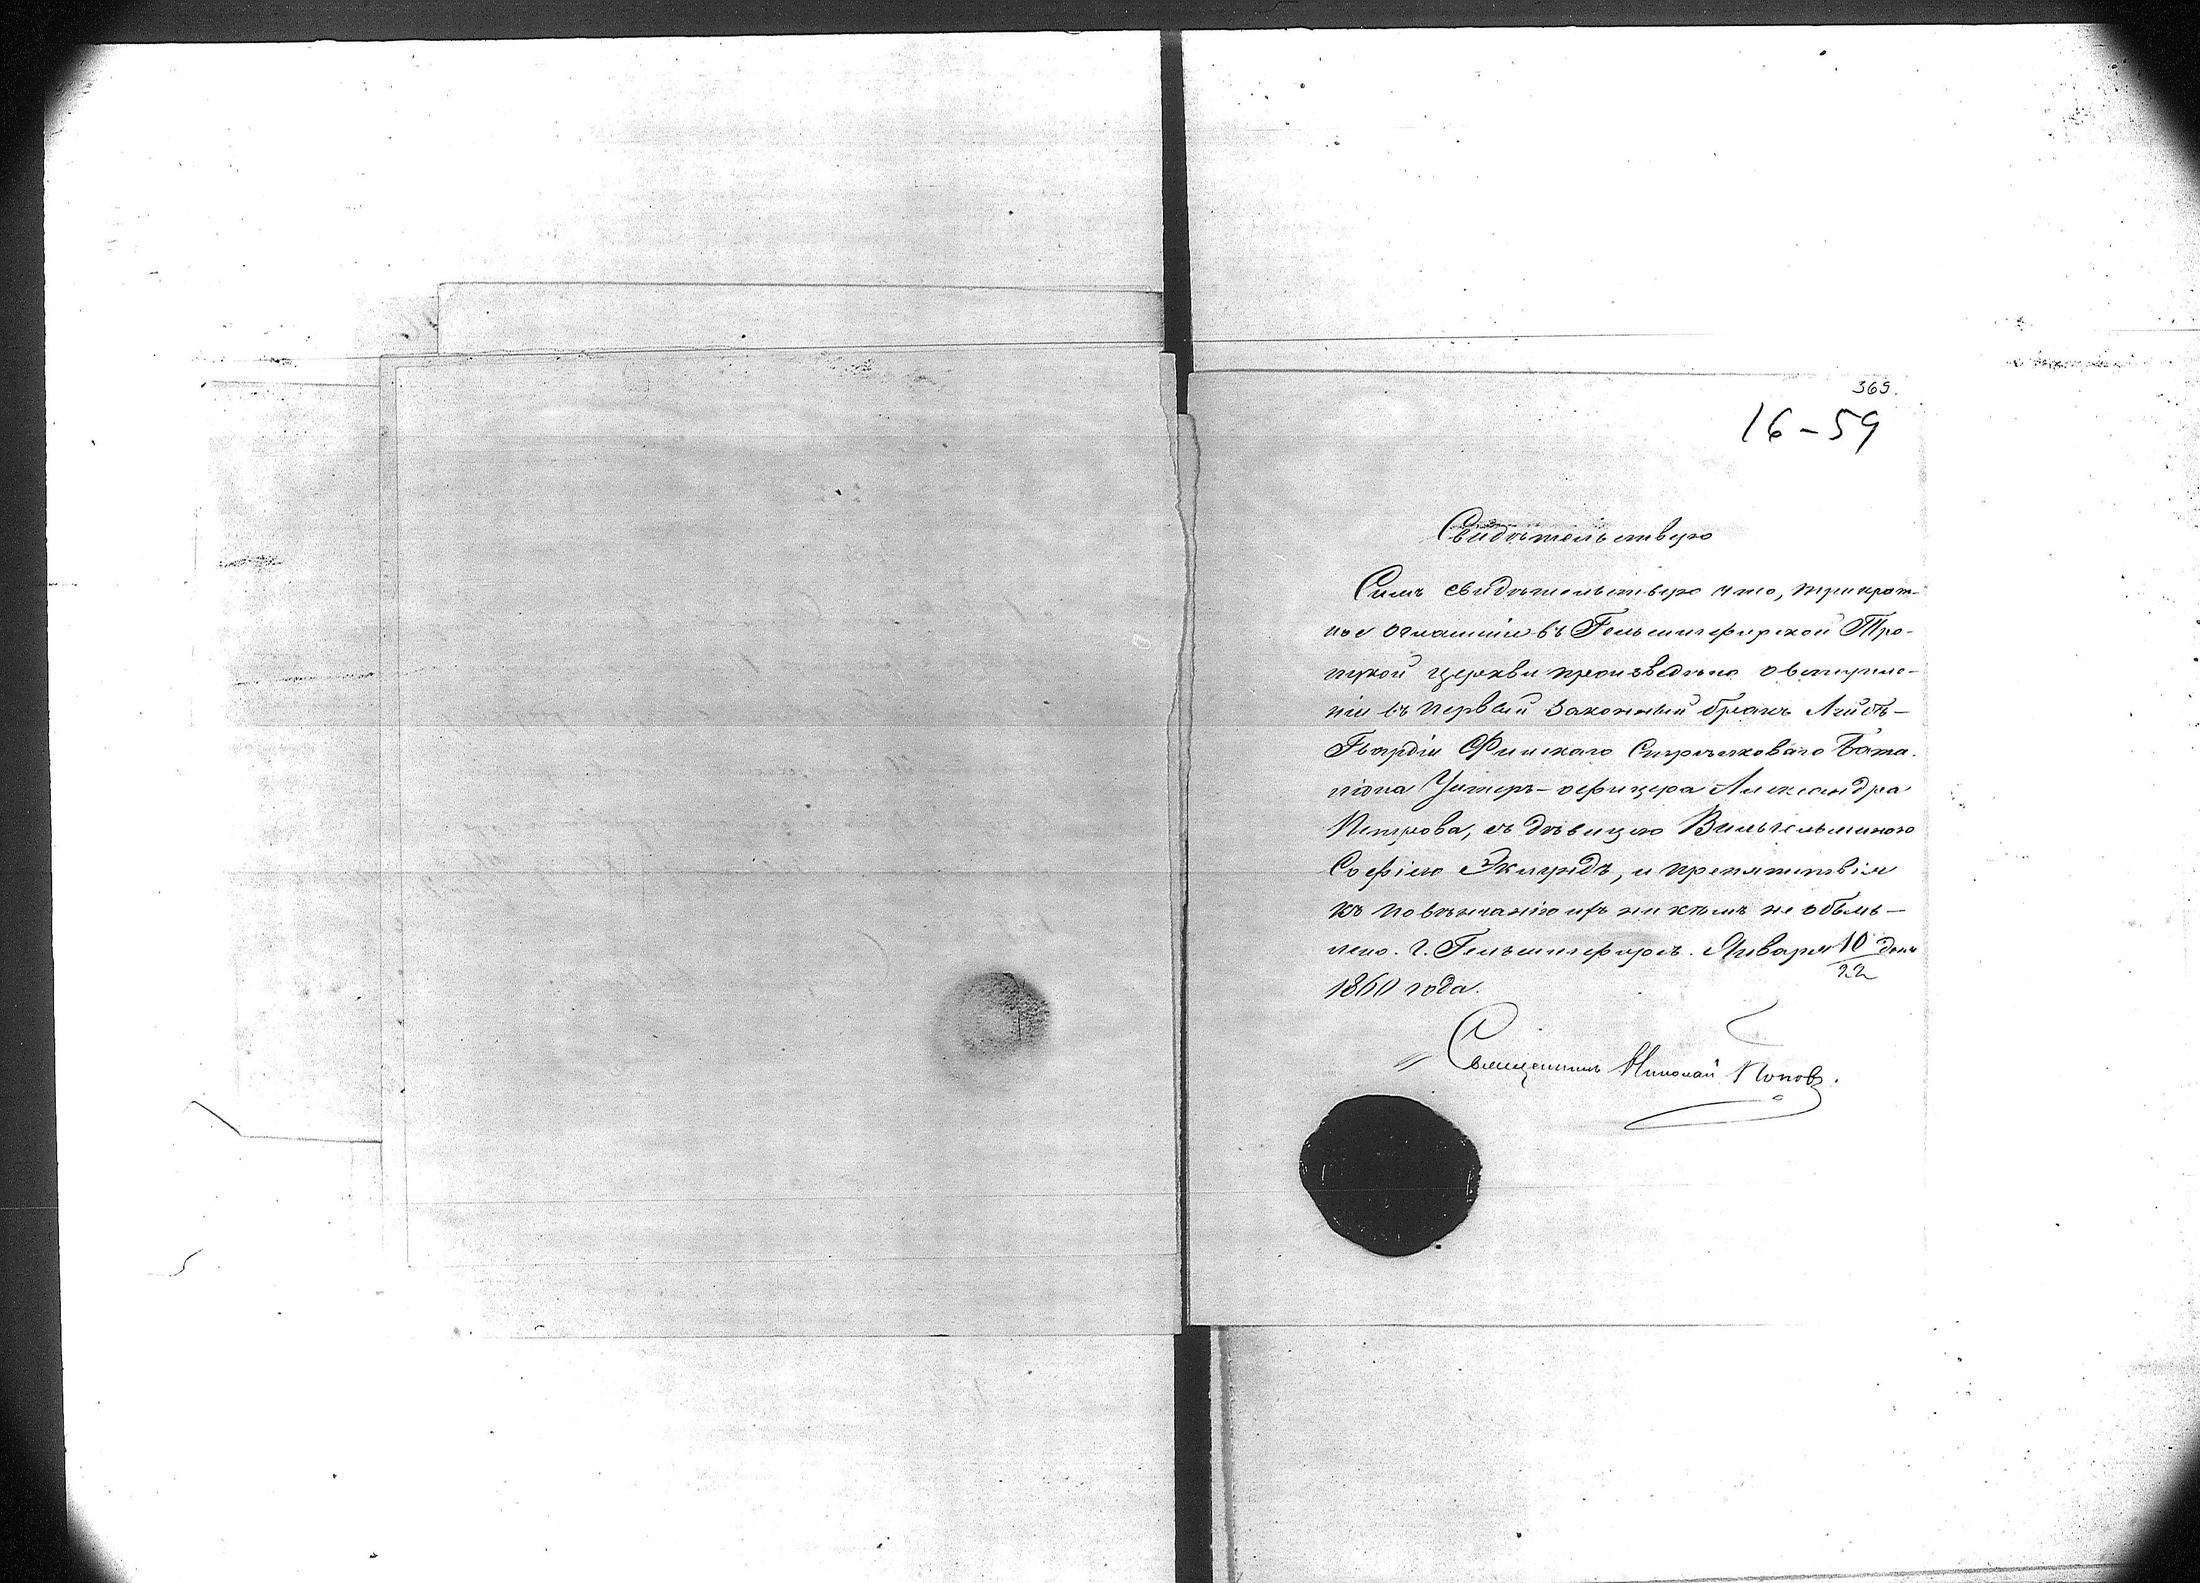 365.
16-59
Свидѣтельствую
Симъ свидѣтельствую что, трикрат-
ное оглашеніе въ Гельсингфорской Тро-
ицкой церкви произведено о вступле-
ніи въ первый законный бракъ Лейбъ-
Гвардіи Финскаго Стрѣлковаго Бата-
ліона Унтеръ-офицера Александра
Петрова, съ дѣвицею Вильгельминою
Софіею Эклундъ, и препятствія
къ повѣнчанію ихъ ни кѣмъ не объяв-
лено. Г. Гельсингфорсъ. Января 10/22 дня
1860 года.
Священникъ Николай Поповъ.